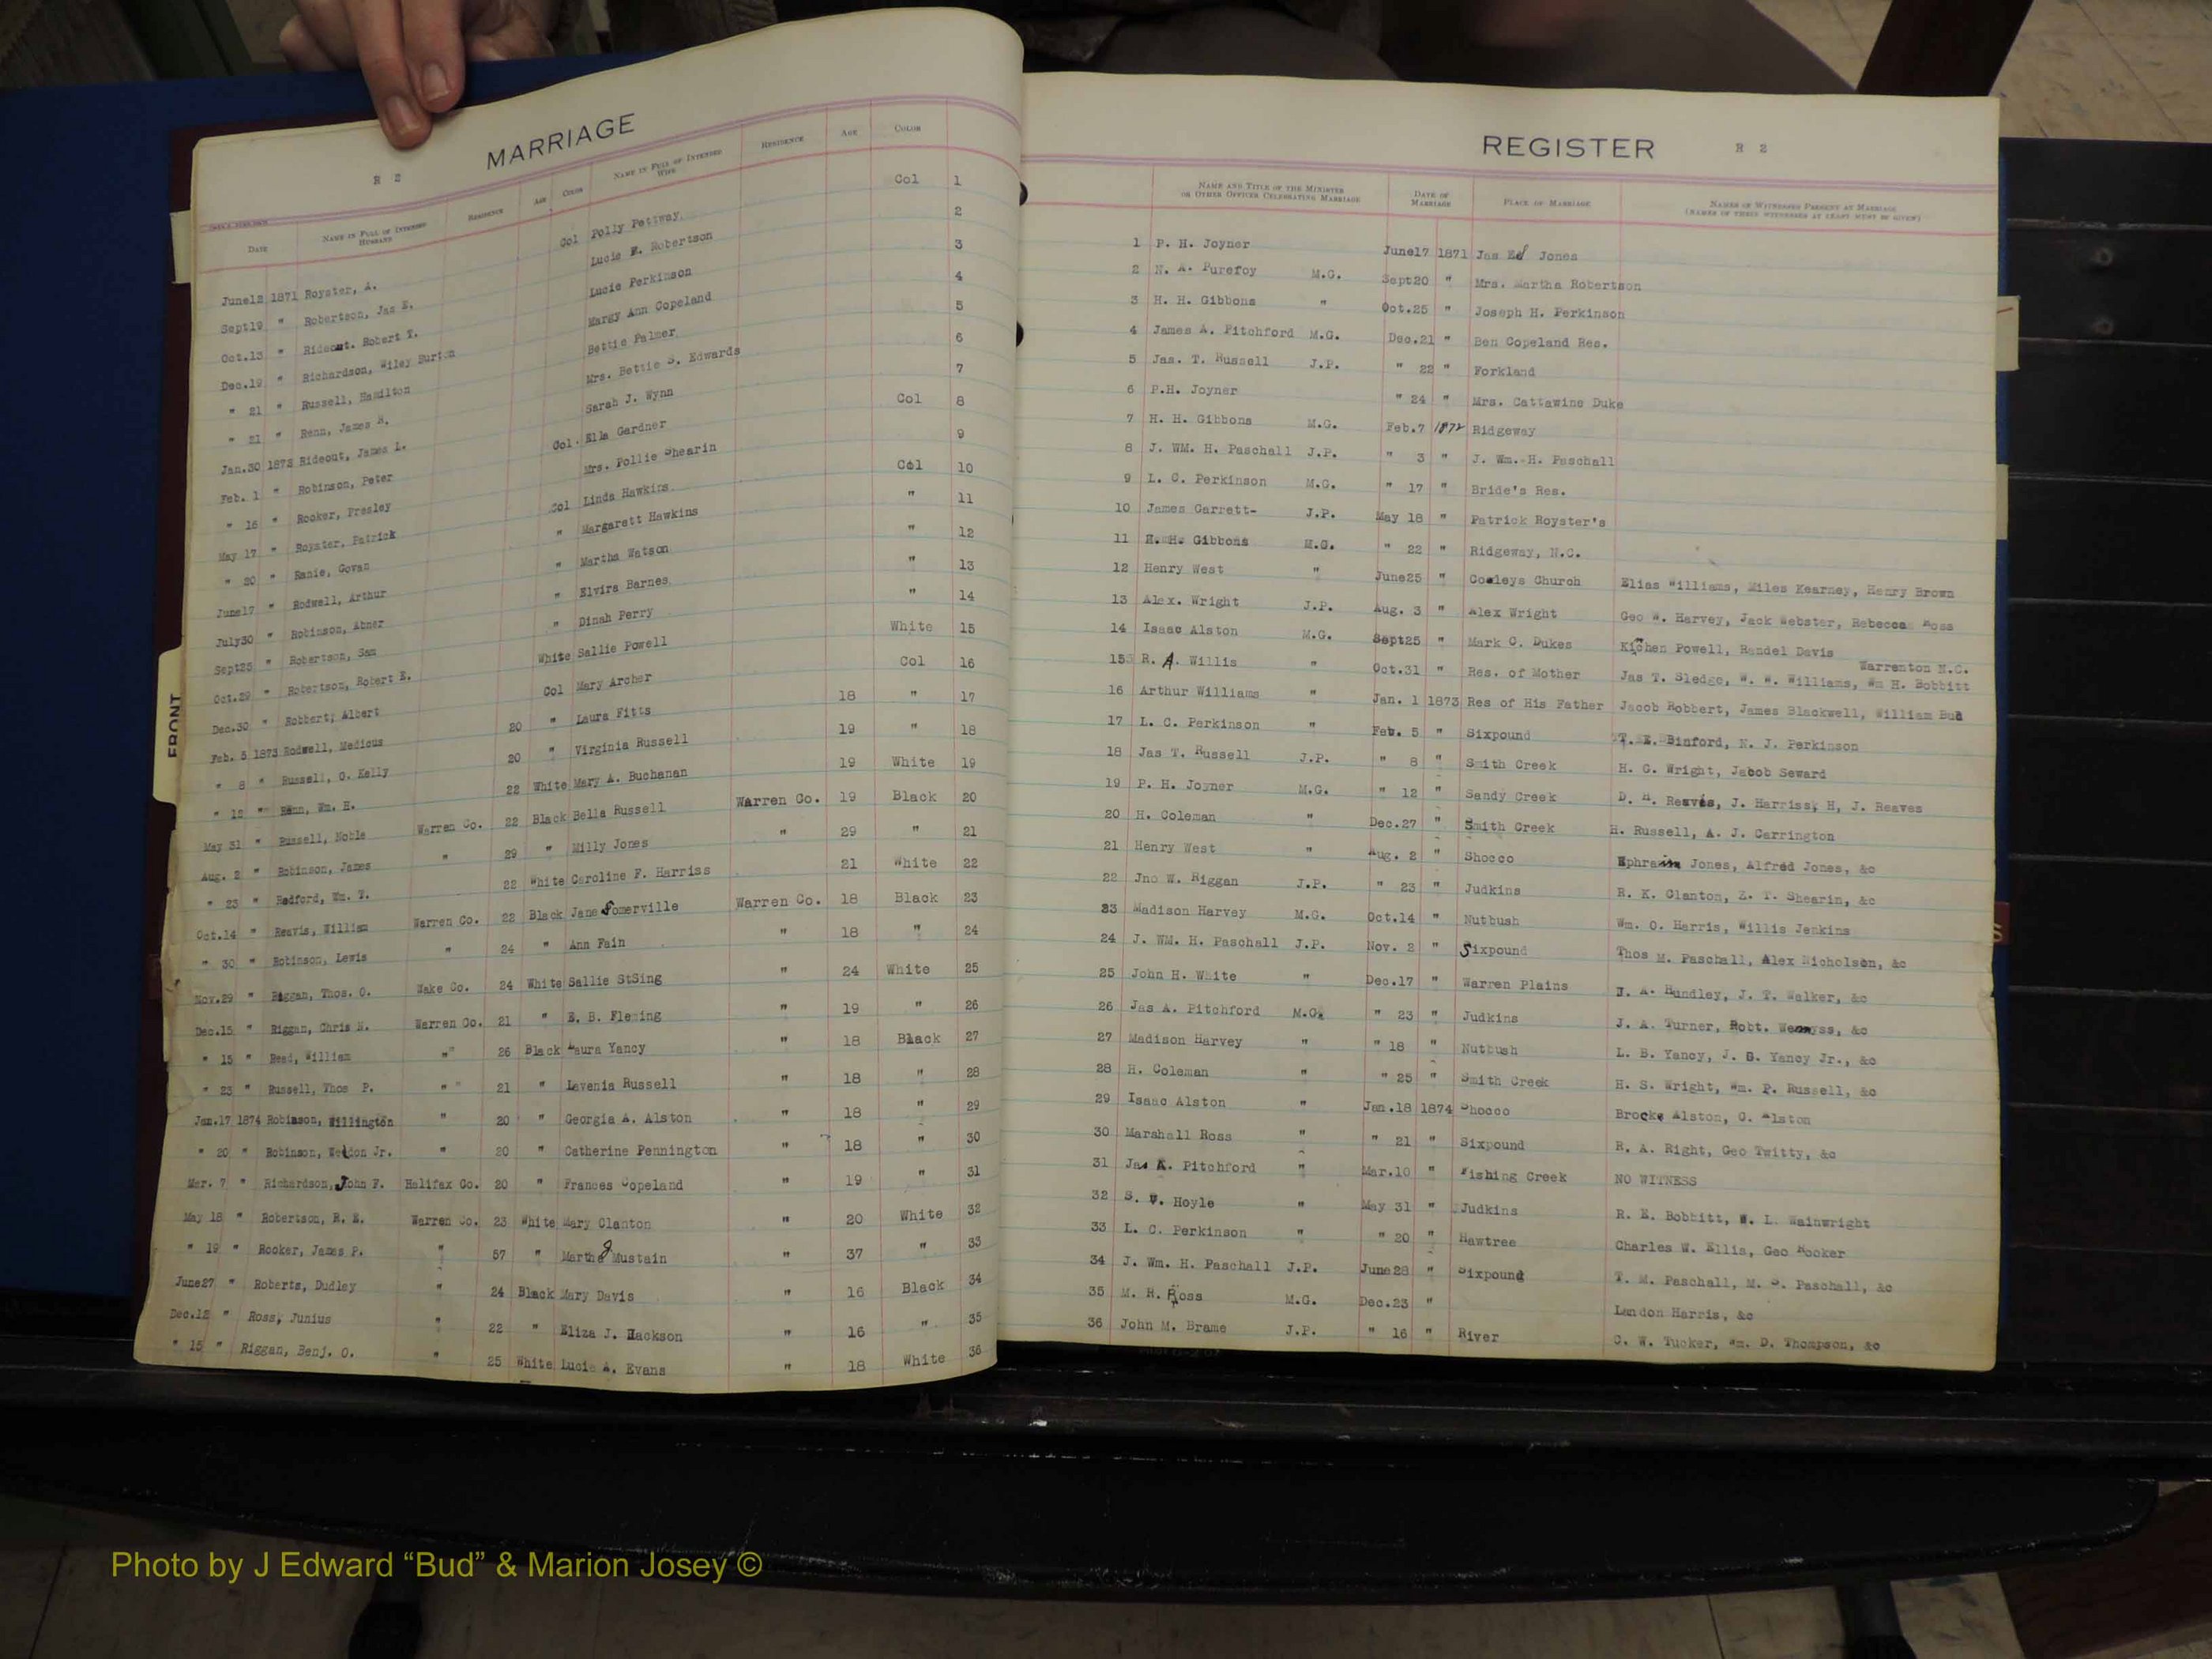 MARRIAGE
R 2
DATE NAME IN FULL OF INTENDED HUSBAND RESIDENCE AGE COLOR NAME IN FULL OF INTENDED WIFE RESIDENCE AGE COLOR
June12 1871 Royster, A. Col Polly Pettway Col 1
Sept19 " Robertson, Jas E. Lucie F. Robertson 2
Oct.13 " Rideout. Robert T. Lucie Perkinson 3
Dec.19 " Richardson, Wiley Burton Margy Ann Copeland 4
" 21 " Russell, Hamilton Bettie Palmer 5
" 21 " Renn, James B. Mrs. Bettie S. Edwards 6
Jan.30 1873 Rideout, James L. Sarah J. Wynn 7
Feb. 1 " Robinson, Peter Col. Ella Gardner Col 8
" 16 " Rooker, Presley Mrs. Pollie Shearin 9
May 17 " Royster, Patrick Col Linda Hawkins Col 10
" 20 " Ranie, Govan " Margarett Hawkins " 11
June17 " Rodwell, Arthur " Martha Watson " 12
July30 " Robinson, Abner " Elvira Barnes " 13
Sept25 " Robertson, Sam " Dinah Perry " 14
Oct.29 " Robertson, Robert E. White Sallie Powell White 15
Dec.30 " Robbert, Albert Col Mary Archer Col 16
Feb. 5 1873 Rodwell, Medicus 20 " Laura Fitts 18 " 17
" 8 " Russell, O. Kelly 20 " Virginia Russell 19 " 18
" 12 " Renn, Wm. H. 22 White Mary A. Buchanan 19 White 19
May 31 " Russell, Noble Warren Co. 22 Black Bella Russell Warren Co. 19 Black 20
Aug. 2 " Robinson, James " 29 " Milly Jones " 29 " 21
" 23 " Redford, Wm. T. 22 White Caroline F. Harriss 21 White 22
Oct.14 " Reavis, William Warren Co. 22 Black Jane Somerville Warren Co. 18 Black 23
" 30 " Robinson, Lewis " 24 " Ann Fain " 18 " 24
Nov.29 " Riggan, Thos. O. Wake Co. 24 White Sallie StSing " 24 White 25
Dec.15 " Riggan, Chris N. Warren Co. 21 " E. B. Fleming " 19 " 26
" 15 " Read, William " 26 Black Laura Yancy " 18 Black 27
" 23 " Russell, Thos P. " 21 " Lavenia Russell " 18 " 28
Jan.17 1874 Robinson, Willington " 20 " Georgia A. Alston " 18 " 29
" 20 " Robinson, Weldon Jr. " 20 " Catherine Pennington " 18 " 30
Mar. 7 " Richardson, John F. Halifax Co. 20 " Frances Copeland " 19 " 31
May 18 " Robertson, R. E. Warren Co. 23 White Mary Clanton " 20 White 32
" 19 " Rooker, James P. " 57 " Martha J Mustain " 37 " 33
June27 " Roberts, Dudley " 24 Black Mary Davis " 16 Black 34
Dec.12 " Ross, Junius " 22 " Eliza J. Hackson " 16 " 35
" 15 " Riggan, Benj. O. " 25 White Lucie A. Evans " 18 White 36
REGISTER R 2
NAME AND TITLE OF THE MINISTER OR OTHER OFFICER CELEBRATING MARRIAGE DATE OF MARRIAGE PLACE OF MARRIAGE NAMES OF WITNESSES PRESENT AT MARRIAGE (NAMES OF THREE WITNESSES AT LEAST MUST BE GIVEN)
1 P. H. Joyner June17 1871 Jas Ed Jones
2 N. A. Purefoy M.G. Sept20 " Mrs. Martha Robertson
3 H. H. Gibbons " Oct.25 " Joseph H. Perkinson
4 James A. Pitchford M.G. Dec.21 " Ben Copeland Res.
5 Jas. T. Russell J.P. " 22 " Forkland
6 P.H. Joyner " 24 " Mrs. Cattawine Duke
7 H. H. Gibbons M.G. Feb.7 1872 Ridgeway
8 J. WM. H. Paschall J.P. " 3 " J. Wm. H. Paschall
9 L. C. Perkinson M.G. " 17 " Bride's Res.
10 James Garrett- J.P. May 18 " Patrick Royster's
11 H. H. Gibbons M.G. " 22 " Ridgeway, N.C.
12 Henry West " June25 " Cooleys Church Elias Williams, Miles Kearney, Henry Brown
13 Alex. Wright J.P. Aug. 3 " Alex Wright Geo W. Harvey, Jack Webster, Rebecca Ross
14 Isaac Alston M.G. Sept25 " Mark C. Dukes Kichen Powell, Randel Davis
Warrenton N.C.
15 R. A. Willis " Oct.31 " Res. of Mother Jas T. Sledge, W. W. Williams, Wm H. Bobbitt
16 Arthur Williams " Jan. 1 1873 Res of His Father Jacob Robbert, James Blackwell, William Bud
17 L. C. Perkinson " Feb. 5 " Sixpound T. E. Binford, N. J. Perkinson
18 Jas T. Russell J.P. " 8 " Smith Creek H. G. Wright, Jacob Seward
19 P. H. Joyner M.G. " 12 " Sandy Creek D. H. Reavis, J. Harriss, H, J. Reaves
20 H. Coleman " Dec.27 " Smith Creek H. Russell, A. J. Carrington
21 Henry West " Aug. 2 " Shocco Ephraim Jones, Alfred Jones, &c
22 Jno W. Riggan J.P. " 23 " Judkins R. K. Clanton, Z. T. Shearin, &c
23 Madison Harvey M.G. Oct.14 " Nutbush Wm. O. Harris, Willis Jenkins
24 J. WM. H. Paschall J.P. Nov. 2 " Sixpound Thos M. Paschall, Alex Nicholson, &c
25 John H. White " Dec.17 " Warren Plains J. A. Hundley, J. T. Walker, &c
26 Jas A. Pitchford M.G. " 23 " Judkins J. A. Turner, Robt. Wemyss, &c
27 Madison Harvey " " 18 " Nutbush L. B. Yancy, J. B. Yancy Jr., &c
28 H. Coleman " " 25 " Smith Creek H. S. Wright, Wm. P. Russell, &c
29 Isaac Alston " Jan.18 1874 Shocco Brocke Alston, G. Alston
30 Marshall Ross " " 21 " Sixpound R. A. Right, Geo Twitty, &c
31 Jas A. Pitchford " Mar.10 " Fishing Creek NO WITNESS
32 S. V. Hoyle " May 31 " Judkins R. E. Bobbitt, W. L. Wainwright
33 L. C. Perkinson " " 20 " Hawtree Charles W. Ellis, Geo Rooker
34 J. Wm. H. Paschall J.P. June28 " Sixpound T. M. Paschall, M. S. Paschall, &c
35 M. H. Ross M.G. Dec.23 " Landon Harris, &c
36 John M. Brame J.P. " 16 " River C. W. Tucker, Wm. D. Thompson, &c
FRONT
Photo by J Edward “Bud” & Marion Josey ©